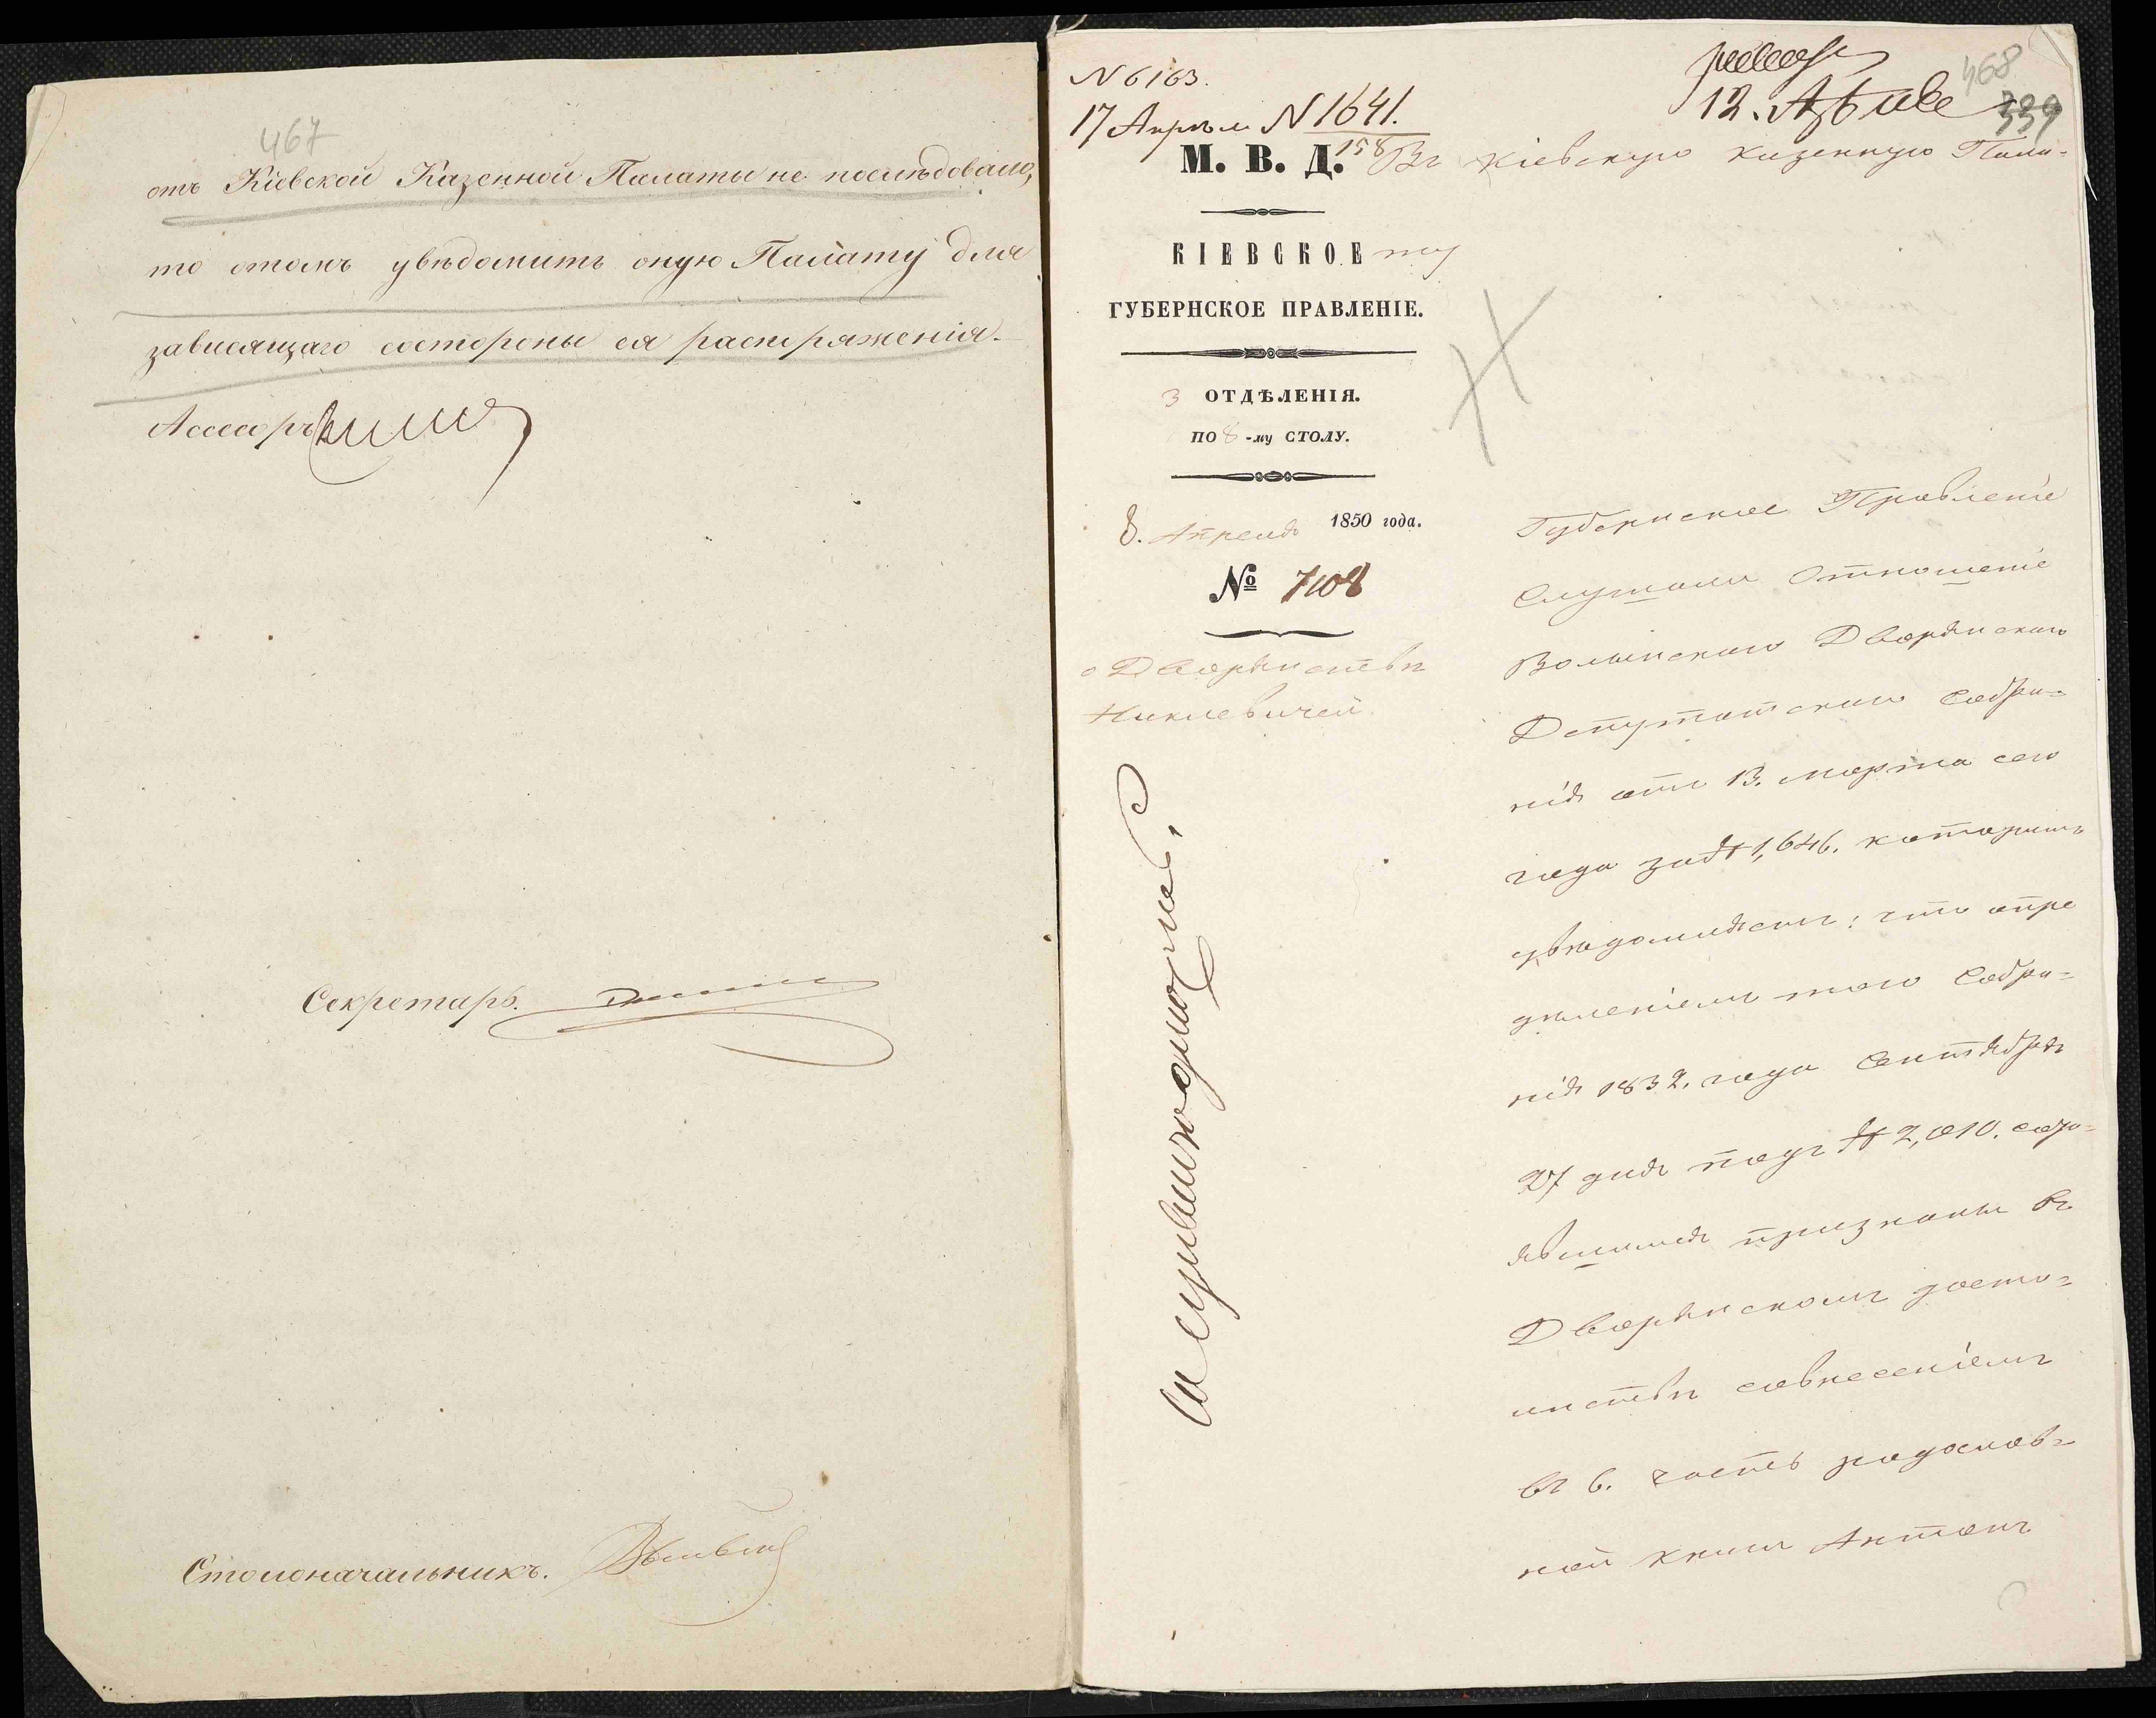 467
отъ Кіевской Казенной Палаты не послѣдовало,
то отомъ увѣдомить оную Палату для
зависящаго состороны ея распоряженія.
Ассесоръ
Секретарь.
Столоначальникъ.
468
339
N 6163.
17 Апрѣля N 1641.
158
12. Апрѣля
М. В. Д. Въ Кіевскую Казенную Пала-
КІЕВСКОЕ ту
ГУБЕРНСКОЕ ПРАВЛЕНІЕ.
3 ОТДѢЛЕНІЯ.
ПО 8 -му СТОЛУ.
8. Апреля 1850 года.
№ 7108
о Дворянствѣ
Губернское Правленіе
Слушали Отношеніе
Волынскаго Дворянскаго
Депутатскаго Собра=
нія отъ 13. Марта сего
года за № 1,646. которымъ
увѣдомляетъ: что опре
дѣленіемъ того Собра=
нія 1832. года Сентября
27 дня подъ № 2,010. состо=
явшимся признаны въ
Дворянскомъ досто=
инствѣ совнесеніемъ
въ 6. часть родослов=
ной книги Антонъ